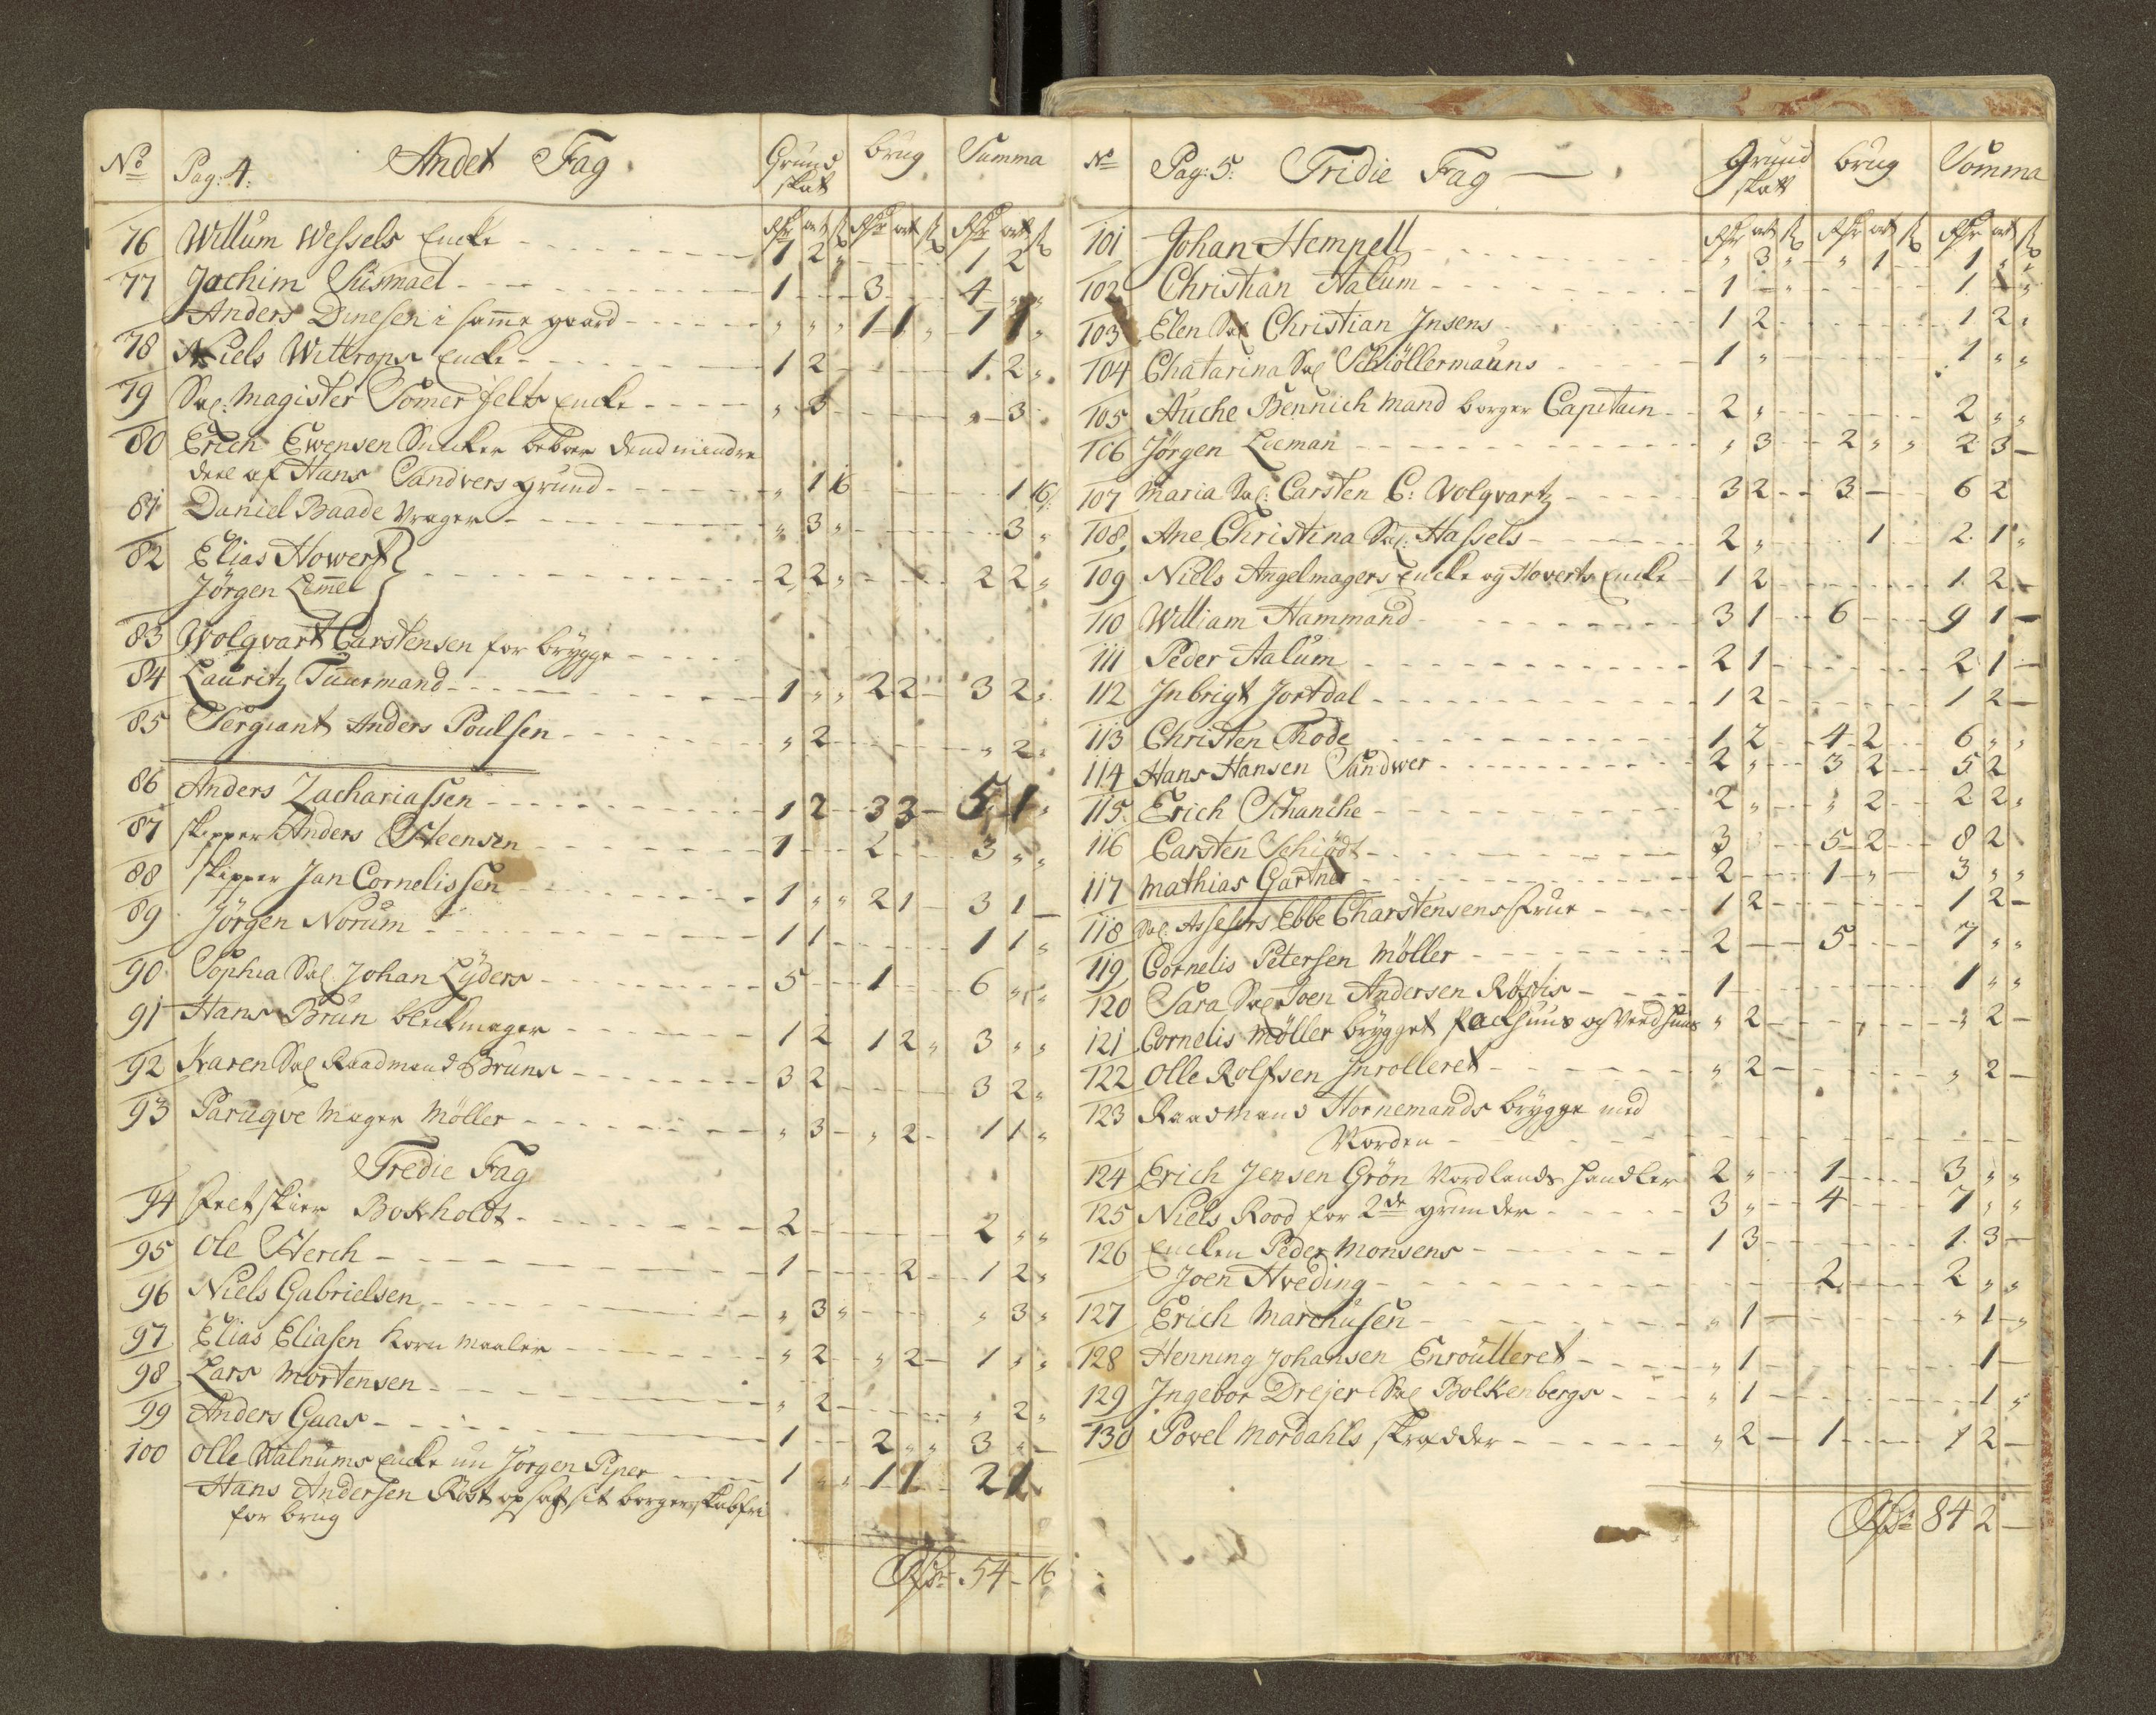 No Pag: 4: Andet Fag. Grund skat brug Summa
Rdr ort s Rdr ort s Rdr ort s
76 Willum Wessels Encke 1 2 " 1 2
77 Jachim Susmael 1 3 4 " "
Anders Dinesen i samme gaard " " " 1 1 " 1 1 "
78 Niels Wittrops Encke 1 2 1. 2 "
79 Sal: Magister Somerfelts Encke " 3 " 3
80 Erich Ewensen Snicker beboer dend mindre
deel af Hans Sandvers grund " 1 16 1 16
81 Daniel Baade Vrager " 3 " 3 "
82 Elias Howert
Jörgen Lemel 2 2 " 2 2 "
83 Wolqvart Carstensen for brygge
84 Lauritz Tuurmand 1 " " 2 2 3 2 "
85 Sergiant Anders Poulsen " 2 " 2 "
86 Anders Zachariassen 1 2 3 3 5 1 "
87 skipper Anders Steensen 1 2 3 " "
88 skipper Jan Cornelissen 1 " " 2 1 3 1
89 Jörgen Norum 1 1 1 1 "
90 Sophia Sal Johan Lÿders 5 1 6 " "
91 Hans Brun bleckmager 1 2 1 2 " 3 " "
92 Karen Sal Raadmand Bruns 3 2 3 2 "
93 Paruqve mager Möller " 3 " 2 1 1 "
Tredie Fag
94 feltskier Bokholdt 2 2 " "
95 Ole Sterch 1 2 1 2 "
96 Niels Gabrielsen " 3 " " 3 "
97 Elias Eliasen korn maaler " 2 " 2 1 " "
98 Lars Mortensen " 2 " 2 "
99 Anders Gaas 1 2 " " 3 "
100 Olle Walnums Encke nu Jörgen Piper 1 " " 1 1 2 1
Hans Andersen Röst opsagt sit borgerskab fri
for brug
Rdr 54 - 16
No Pag: 5: Tridie Fag Grund skatt brug Somma
Rdr ort s Rdr ort s Rdr ort s
101 Johan Hempell " 3 " " 1 1 " "
102 Christian Aalum 1 " 1 "
103 Elen Sal Christian Jnsens 1 2 1 2 "
104 Chatarina Sal Schiöllermauns 1 " 1 " "
105 Auche Bennich Mand borger Capitain 2 " 2 " "
106 Jörgen Leeman " 3 2 " " 2 3
107 Maria Sal: Carsten C: Volqvartz 3 2 3 6 2
108 Ane Christina Sal: Hassels 2 " 1 2. 1 "
109 Niels Angelmagers Encke og Hoverts Encke 1 2 1. 2
110 William Hammand 3 1 6 9 1
111 Peder Aalum 2 1 2 1
112 Inbrigt Jortdal 1 2 1 2
113 Christen Thode 1 2 4 2 6 " "
114 Hans Hansen Sandwer 2 " 3 2 5 2
115 Erich Schanche 2 " " 2 2 2 "
116 Carsten Schiödt 3 5 2 8 2
117 Mathias Gartner 2 1 " 3 " "
118 Sal: Assesors Ebbe Charstensens frue 1 2 1 2
119 Cornelis Petersen Möller 2 5 7 " "
120 Sara Sal Joen Andersen Röstis 1 1 " "
121 Cornelis Möller brygget Packhuus og Vedhuus " 2 " 2
122 Olle Rolfsen Inrolleret " 2 " 2
123 Raadmand Hornemands brygge med
Norden
124 Erich Jensen Grön Nordlands handler 2 " 1 3 " "
125 Niels Rood for 2de grunder 3 " 4 7 " "
126 Encken Peder Monsens 1 3 1. 3
Joen Hveding 2 2 " "
127 Erich Marchusen " 1 " 1 "
128 Henning Johansen Enroulleret " 1 1
129 Ingebor Drejer Sal Bolkenbergs " 1 1 "
130 Povel Mordahls skrædder " 2 1 1 2
Rdr 84 2